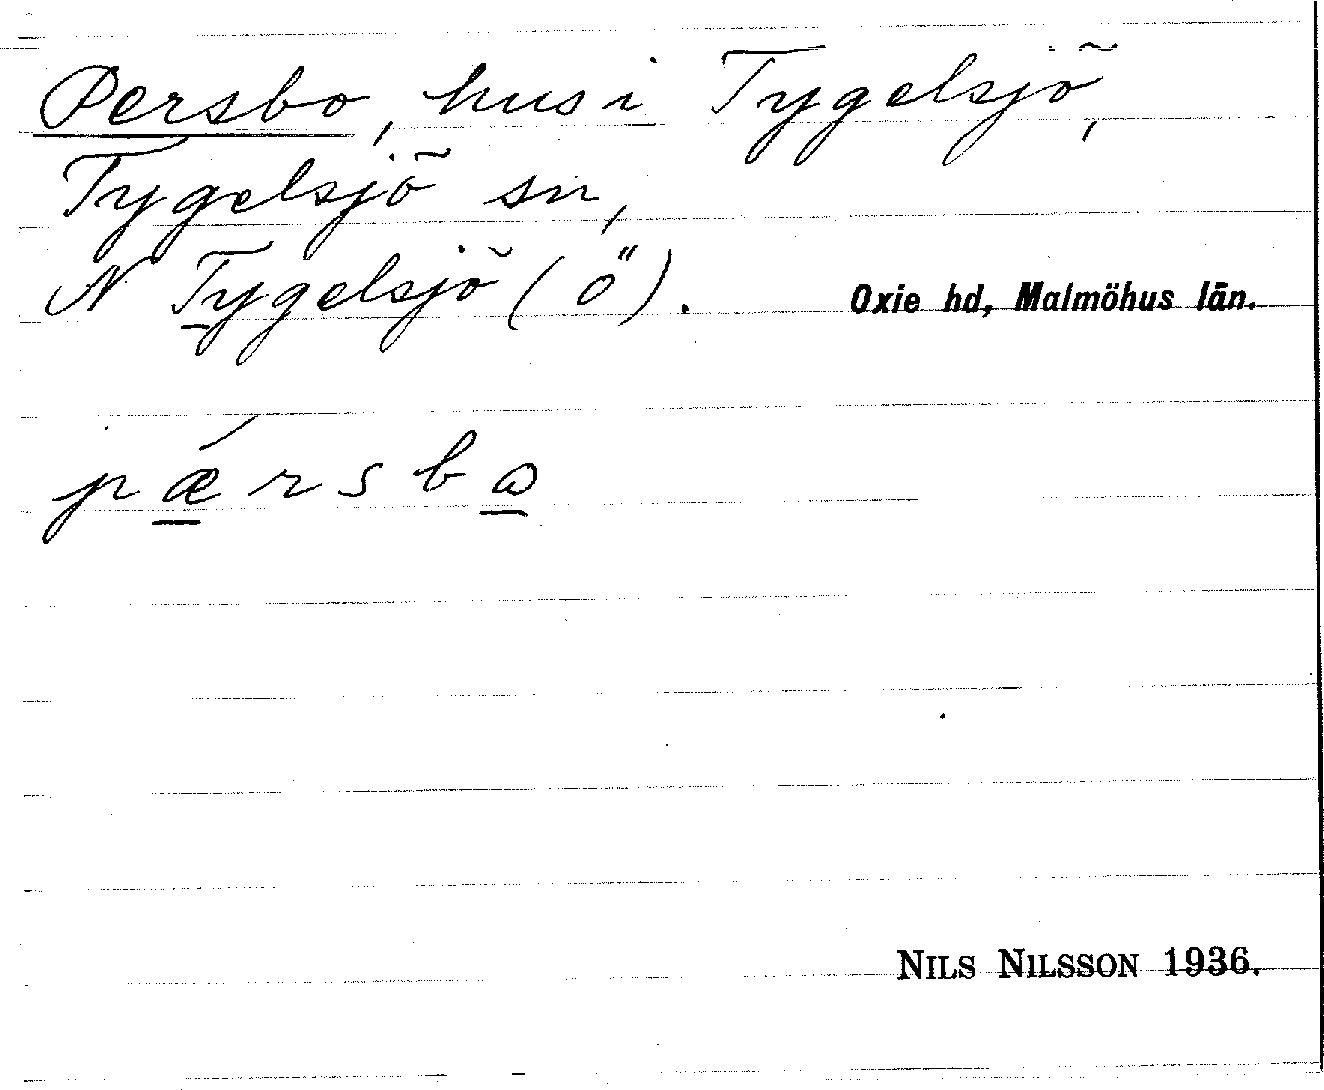 Persbo, hus i Tygelsjö,
Tygelsjö sn,
N Tygelsjö (ö). Oxie hd, Malmöhus län.
pǽrsbω
NILS NILSSON 1936.